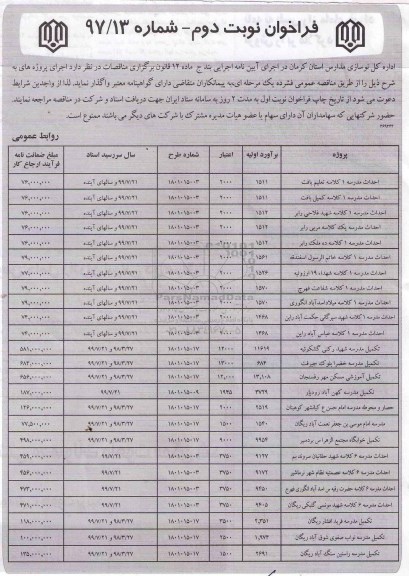 فراخوان نوبت دوم- شماره ۹۷/۱۳
اداره کل نوسازی مدارس استان کرمان در اجرای آیین نامه اجرایی بند ج ماده ۱۲ قانون برگزاری مناقصات در نظر دارد اجرای پروژه های به
شرح ذیل را از طریق مناقصه عمومی فشرده یک مرحله ای،به پیمانکاران متقاضی دارای گواهینامه معتبر واگذار نمایند. لذا از واجدین شرایط
دعوت می شود از تاریخ چاپ فراخوان نوبت اول به مدت ۲ روز به سامانه ستاد ایران جهت دریافت اسناد و شرکت در مناقصه مراجعه نمایند.
حضور شرکتهایی که سهامداران آن دارای سهام یا عضو هیات مدیره مشترک با شرکت های دیگر می باشند ممنوع است.
روابط عمومی
پروژه برآورد اولیه اعتبار شماره طرح سال سررسید اسناد مبلغ ضمانت نامه فرآیند ارجاع کار
احداث مدرسه ۱ کلاسه تعلیم بافت ۱۵۲۱ ۲۰۰۰ ۱۸۰۱۰۱۵۰۰۳ ۹۹/۷/۲۱ و سالهای آینده ۷۶,۰۰۰,۰۰۰
احداث مدرسه ۱ کلاسه کمیل بافت ۲۰۰۰ ۱۸۰۱۰۱۵۰۰۳ ۹۹/۷/۲۱ و سالهای آینده ۷۶,۰۰۰,۰۰۰
احداث مدرسه ۱ کلاسه شهید فلاحی رابر ۱۵۱۲ ۲۰۰۰ ۱۸۰۱۰۱۵۰۰۳ ۹۹/۷/۲۱ و سالهای آینده ۷۶,۰۰۰,۰۰۰
احداث مدرسه یک کلاسه مربی رابر ۱۵۱۲ ۲۰۰۰ ۱۸۰۱۰۱۵۰۰۳ ۹۹/۷/۲۱ و سالهای آینده ۷۶,۰۰۰,۰۰۰
احداث مدرسه ۱ کلاسه ده ملک رابر ۱۵۱۲ ۲۰۰۰ ۱۸۰۱۰۱۵۰۰۳ ۹۹/۷/۲۱ و سالهای آینده ۷۶,۰۰۰,۰۰۰
احداث مدرسه ۱ کلاسه خاتم الرسول اسفندقه ۲۰۰۰ ۱۸۰۱۰۱۵۰۰۳ ۹۹/۷/۲۱ و سالهای آینده
احداث مدرسه ۱ کلاسه شهداء ۱۹ ارزوئیه ۲۰۰۰ ۱۸۰۱۰۱۵۰۰۳ ۹۹/۷/۲۱ و سالهای آینده ۷۷,۰۰۰,۰۰۰
احداث مدرسه ۱ کلاسه شفاعت فهرج ۱۵۷۰ ۲۰۰۰ ۱۸۰۱۰۱۵۰۰۳ ۹۹/۷/۲۱ و سالهای آینده ۷۹,۰۰۰,۰۰۰
احداث مدرسه ۱ کلاسه میلاداسدآباد انگوری ۱۵۷۰ ۲۰۰۰ ۱۸۰۱۰۱۵۰۰۳ ۹۹/۷/۲۱ و سالهای آینده ۷۹,۰۰۰,۰۰۰
احداث مدرسه ۱ کلاسه شهید میرگلی حکمت آباد راین ۱۴۶۸ ۲۰۰۰ ۱۸۰۱۰۱۵۰۰۳ ۹۹/۷/۲۱ و سالهای آینده ۷۴,۰۰۰,۰۰۰
احداث مدرسه ۱ کلاسه عباس آباد راین ۱۴۶۸ ۲۰۰۰ ۱۸۰۱۰۱۵۰۰۳ ۹۹/۷/۲۱ و سالهای آینده ۷۴,۰۰۰,۰۰۰
تکمیل مدرسه شهید رکنی گشکوئیه ۱۱۶۱۹ ۱۲۰۰۰ ۱۸۰۱۰۱۵۰۱۷ ۹۸/۳/۲۷ و ۹۹/۷/۲۱ ۵۸۱,۰۰۰,۰۰۰
تکمیل مدرسه خضرا بلوک جیرفت ۱۳۰۰۰ ۱۸۰۱۰۱۵۰۱۷ ۹۸/۳/۲۷ و ۹۹/۷/۲۱ ۶۸۲,۰۰۰,۰۰۰
تکمیل آموزشی مسکن مهر رفسنجان ۱۳,۱۰۸ ۱۲,۰۰۰ ۱۸۰۱۰۱۵۰۱۷ ۹۸/۳/۲۷ و ۹۹/۷/۲۱ ۶۵۶,۰۰۰,۰۰۰
تکمیل مدرسه کهن آباد رودبار ۳۷۲۹ ۱۹۴۵ ۱۸۰۱۰۱۵۰۰۹ ۹۹/۷/۲۱ ۱۸۷,۰۰۰,۰۰۰
حصار و محوطه مدرسه امام حسن ع کیانشهر کوهبنان ۲۵۱۹ ۲۰۰۰ ۱۸۰۱۰۱۵۰۱۷ ۹۸/۳/۲۷ و ۹۹/۷/۲۱ ۱۲۶,۰۰۰,۰۰۰
مدرسه امام موسی بن جعفر نعمت آباد ریگان ۱۵۴۰ ۱۵۰۰ ۱۸۰۱۰۱۵۰۱۷ ۹۸/۳/۲۷ و ۹۹/۷/۲۱ ۷۷,۵۰۰,۰۰۰
تکمیل خوابگاه مجتمع الزهراس بردسیر ۹۹۵۶ ۹۰۰۰ ۱۸۰۱۰۱۵۰۱۷ ۹۸/۳/۲۷ و ۹۹/۷/۲۱ ۴۹۸,۰۰۰,۰۰۰
احداث مدرسه ۶ کلاسه شهید حقانیان سروند بم ۹۱۲۷ ۳۷۵۰ ۱۸۰۱۰۱۵۰۰۳ ۹۹/۷/۲۱
احداث مدرسه ۶ کلاسه عصمتیه نظام شهر نرماشیر ۹۱۷۲ ۳۷۵۰ ۱۸۰۱۰۱۵۰۰۳ ۹۹/۷/۲۱
احداث مدرسه ۶ کلاسه حضرت رقیه س اسد آباد انگوری فهرج ۳۷۵۰ ۱۸۰۱۰۱۵۰۰۳ ۹۹/۷/۲۱ ۴۷۳,۰۰۰,۰۰۰
احداث مدرسه ۶ کلاسه شهید مومنی گنبکی ریگان ۹۴۰۵ ۳۷۵۰ ۱۸۰۱۰۱۵۰۰۳ ۹۹/۷/۲۱ ۴۷۱,۰۰۰,۰۰۰
تکمیل مدرسه فرید افشار ریگان ۲,۳۵۱ ۲۵۰۰ ۱۸۰۱۰۱۵۰۱۷ ۹۸/۳/۲۷ و ۹۹/۷/۲۱ ۱۱۸,۰۰۰,۰۰۰
تکمیل مدرسه نواب صفوی شوق آباد ریگان ۲۰۰۰ ۱۸۰۱۰۱۵۰۱۷ ۹۸/۳/۲۷ و ۹۹/۷/۲۱ ۱۰۰,۰۰۰,۰۰۰
تکمیل مدرسه راستین سنگ آباد ریگان ۲۶۹۱ ۱۵۰۰ ۱۸۰۱۰۱۵۰۱۷ ۹۸/۳/۲۷ و ۹۹/۷/۲۱ ۱۳۵,۰۰۰,۰۰۰